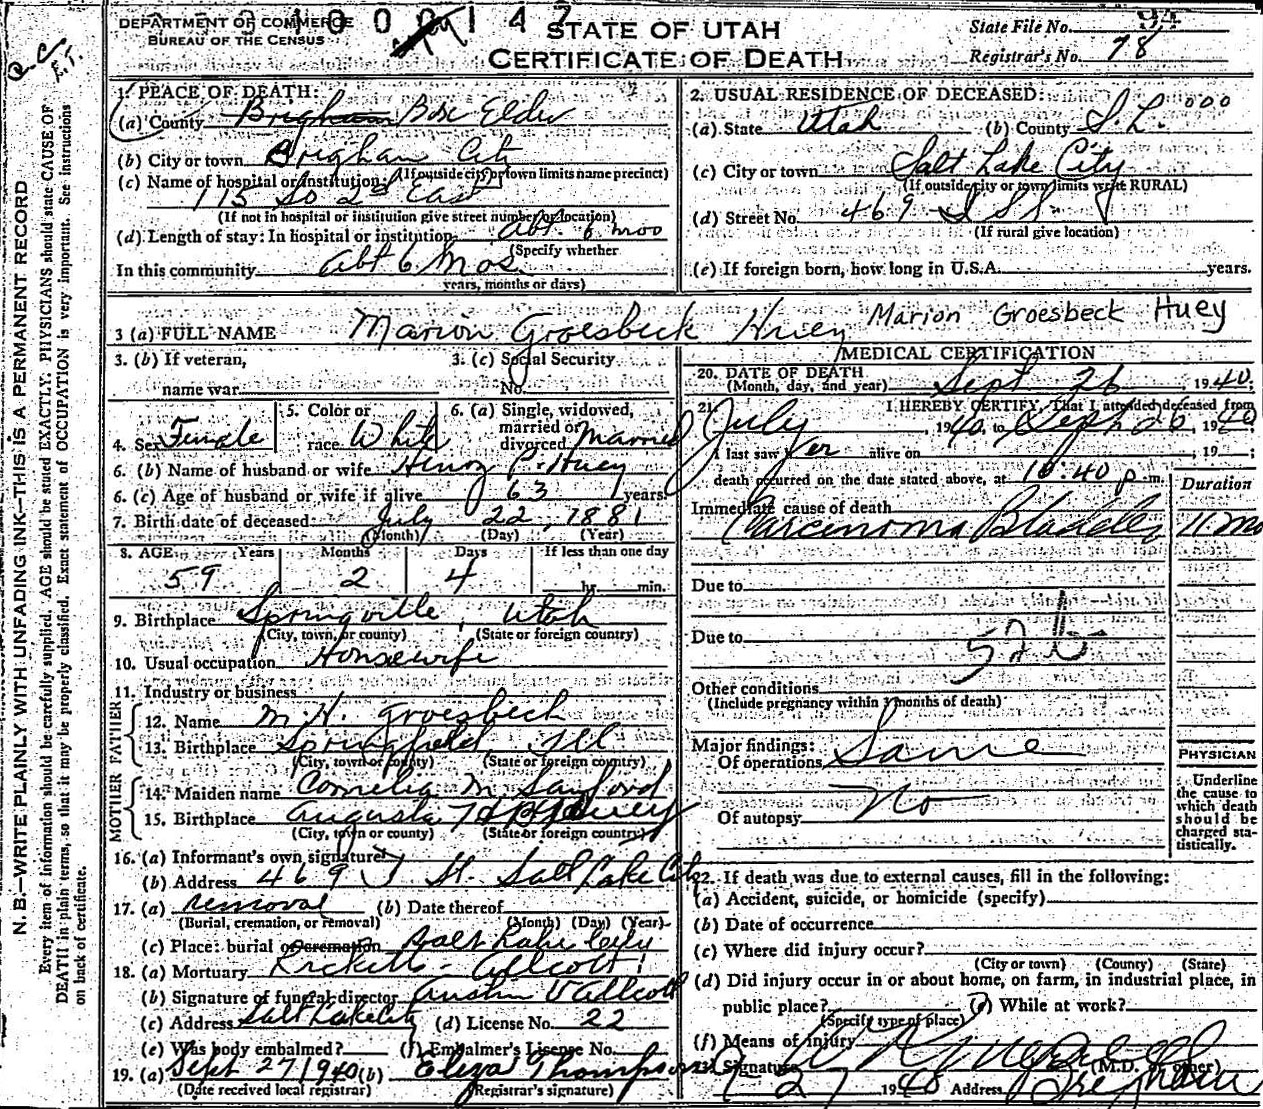 DEPARTMENT OF COMMERCE
BUREAU OF THE CENSUS
STATE OF UTAH
CERTIFICATE OF DEATH
State File No. 94
Registrar's No. 78
N. B.—WRITE PLAINLY WITH UNFADING INK—THIS IS A PERMANENT RECORD
Every item of information should be carefully supplied. AGE should be stated EXACTLY. PHYSICIANS should state CAUSE OF
DEATH in plain terms, so that it may be properly classified. Exact statement of OCCUPATION is very important. See instructions
on back of certificate.
1. PLACE OF DEATH:
(a) County Brigham Box Elder
(b) City or town Brigham City
(If outside city or town limits name precinct)
(c) Name of hospital or institution:
115 So 2d East
(If not in hospital or institution give street number or location)
(d) Length of stay: In hospital or institution abt. 6 mos
(Specify whether
In this community abt 6 mos.
years, months or days)
2. USUAL RESIDENCE OF DECEASED:
(a) State Utah (b) County S. L. 000
(c) City or town Salt Lake City
(If outside city or town limits write RURAL)
(d) Street No. 469
(If rural give location)
(e) If foreign born, how long in U.S.A. years.
3 (a) FULL NAME Marion Groesbeck Huey Marion Groesbeck Huey
3. (b) If veteran,
name war
3. (c) Social Security
No.
4. Sex Female
5. Color or
race White
6. (a) Single, widowed,
married or
divorced Married
6. (b) Name of husband or wife Henry P. Huey
6. (c) Age of husband or wife if alive 63 years
7. Birth date of deceased July 22, 1881
(Month) (Day) (Year)
8. AGE Years Months Days If less than one day
59 2 4 hr. min.
9. Birthplace Springville, Utah
(City, town, or county) (State or foreign country)
10. Usual occupation Housewife
11. Industry or business
FATHER
12. Name M. H. Groesbeck
13. Birthplace Springfield, Ill
(City, town or county) (State or foreign country)
MOTHER
14. Maiden name Cornelia M. Sanford
15. Birthplace Augusta
(City, town or county) (State or foreign country)
16. (a) Informant's own signature
(b) Address 469 J St. Salt Lake City
17. (a) removal (b) Date thereof
(Burial, cremation, or removal) (Month) (Day) (Year)
(c) Place: burial or cremation Salt Lake City
18. (a) Mortuary
(b) Signature of funeral director Austin
(c) Address Salt Lake City (d) License No. 22
(e) Was body embalmed? (f) Embalmer's License No.
19. (a) Sept 27 1940 (b) Eliza Thompson
(Date received local registrar) (Registrar's signature)
MEDICAL CERTIFICATION
20. DATE OF DEATH
(Month, day, and year) Sept 26, 1940;
21. I HEREBY CERTIFY, That I attended deceased from
July, 1940, to Sept 26, 1940;
I last saw her alive on , 19 ;
death occurred on the date stated above, at 10:40 p.m.
Duration
Immediate cause of death
Carcinoma Bladder 11 mo
Due to
Due to
52 b
Other conditions
(Include pregnancy within 3 months of death)
Major findings:
Of operations Same
Of autopsy no
PHYSICIAN
Underline
the cause to
which death
should be
charged sta-
tistically.
22. If death was due to external causes, fill in the following:
(a) Accident, suicide, or homicide (specify)
(b) Date of occurrence
(c) Where did injury occur?
(City or town) (County) (State)
(d) Did injury occur in or about home, on farm, in industrial place, in
public place? (e) While at work?
(Specify type of place)
(f) Means of injury
Signature (M.D. or other)
27 1940 Address Brigham